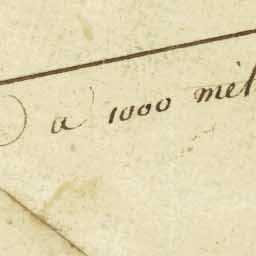 a 1000 mèl